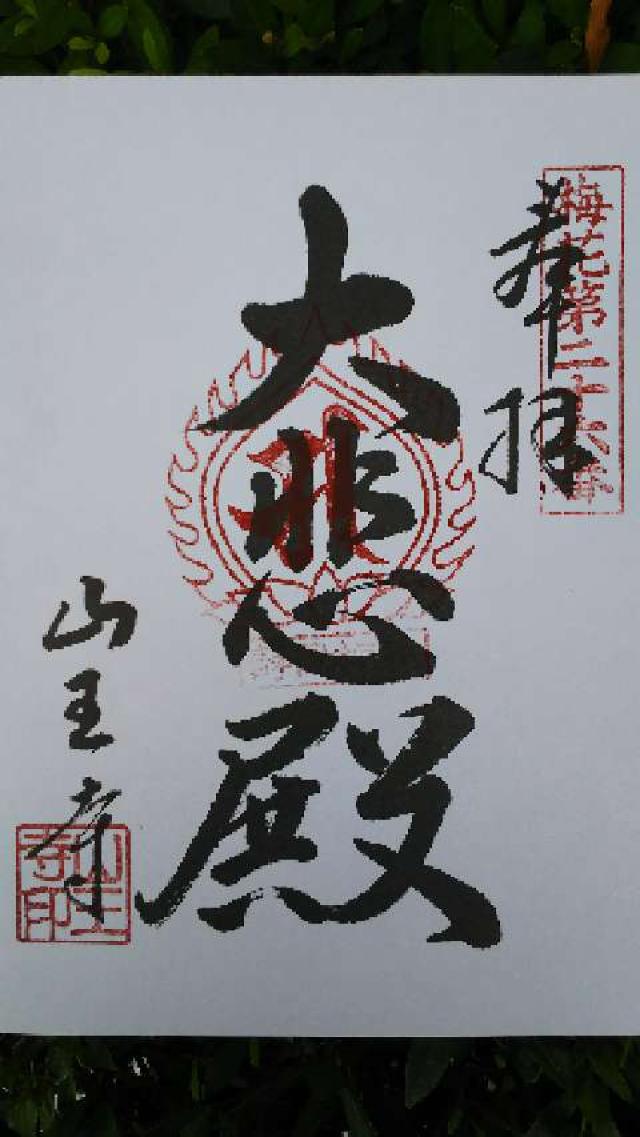 奉拝
梅花第二十六番
大悲殿
山王寺
山王寺印